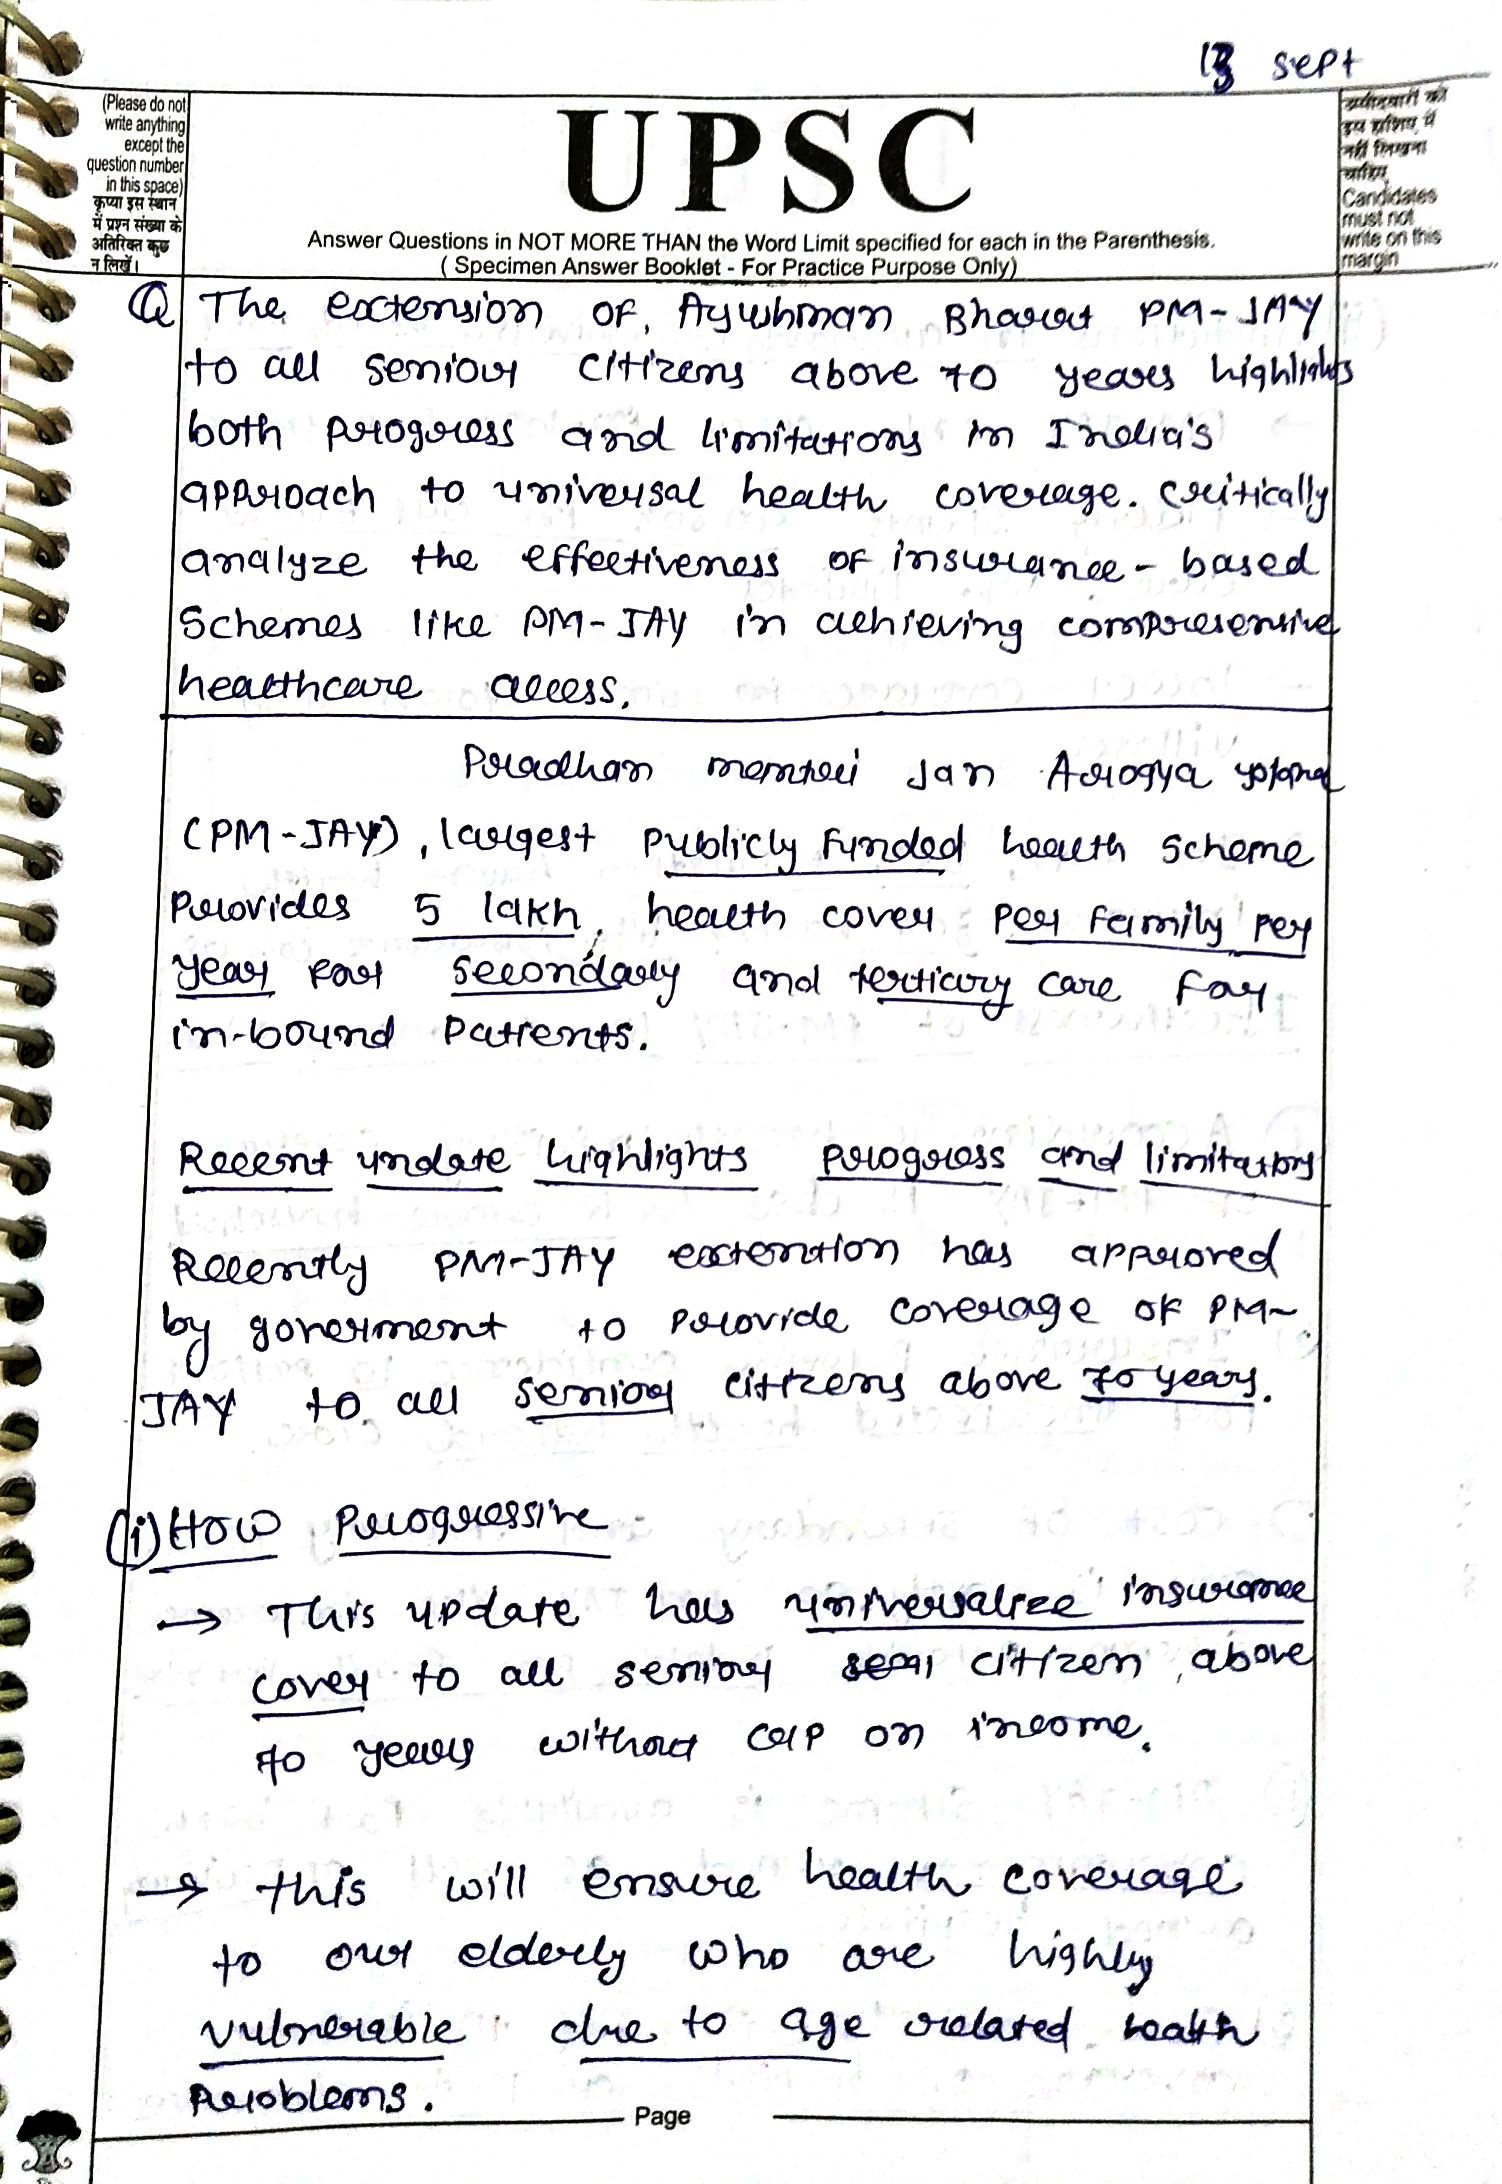 13 Sept
(Please do not
write anything
except the
question number
in this space)
कृप्या इस स्थान
में प्रश्न संख्या के
अतिरिक्त कुछ
न लिखें।
UPSC
Answer Questions in NOT MORE THAN the Word Limit specified for each in the Parenthesis.
( Specimen Answer Booklet - For Practice Purpose Only)
उम्मीदवारों को
इस हाशिए में
नहीं लिखना
चाहिए
Candidates
must not
write on this
margin
Q The extension of, Ayushman Bharat PM-JAY
to all senior citizens above 70 years highlights
both progress and limitations in India's
approach to universal health coverage. critically
analyze the effectiveness of insurance - based
Schemes like PM-JAY in achieving compresensive
healthcare access.
Pradhan mantri Jan Arogya yojana
(PM-JAY), largest publicly funded health scheme
Provides 5 lakh, health cover per family per
year for secondary and tertiary care for
in-bound patients.
Recent update highlights progress and limitations
Recently PM-JAY extention has approved
by goverment to provide coverage of PM-
JAY to all senior citizens above 70 years.
(i) How Progressive
→ This update has universalize insurance
cover to all senior citizen, above
70 years without cap on income.
→ this will ensure health coverage
to our elderly who are highly
vulnerable due to age related health
Problems.
Page